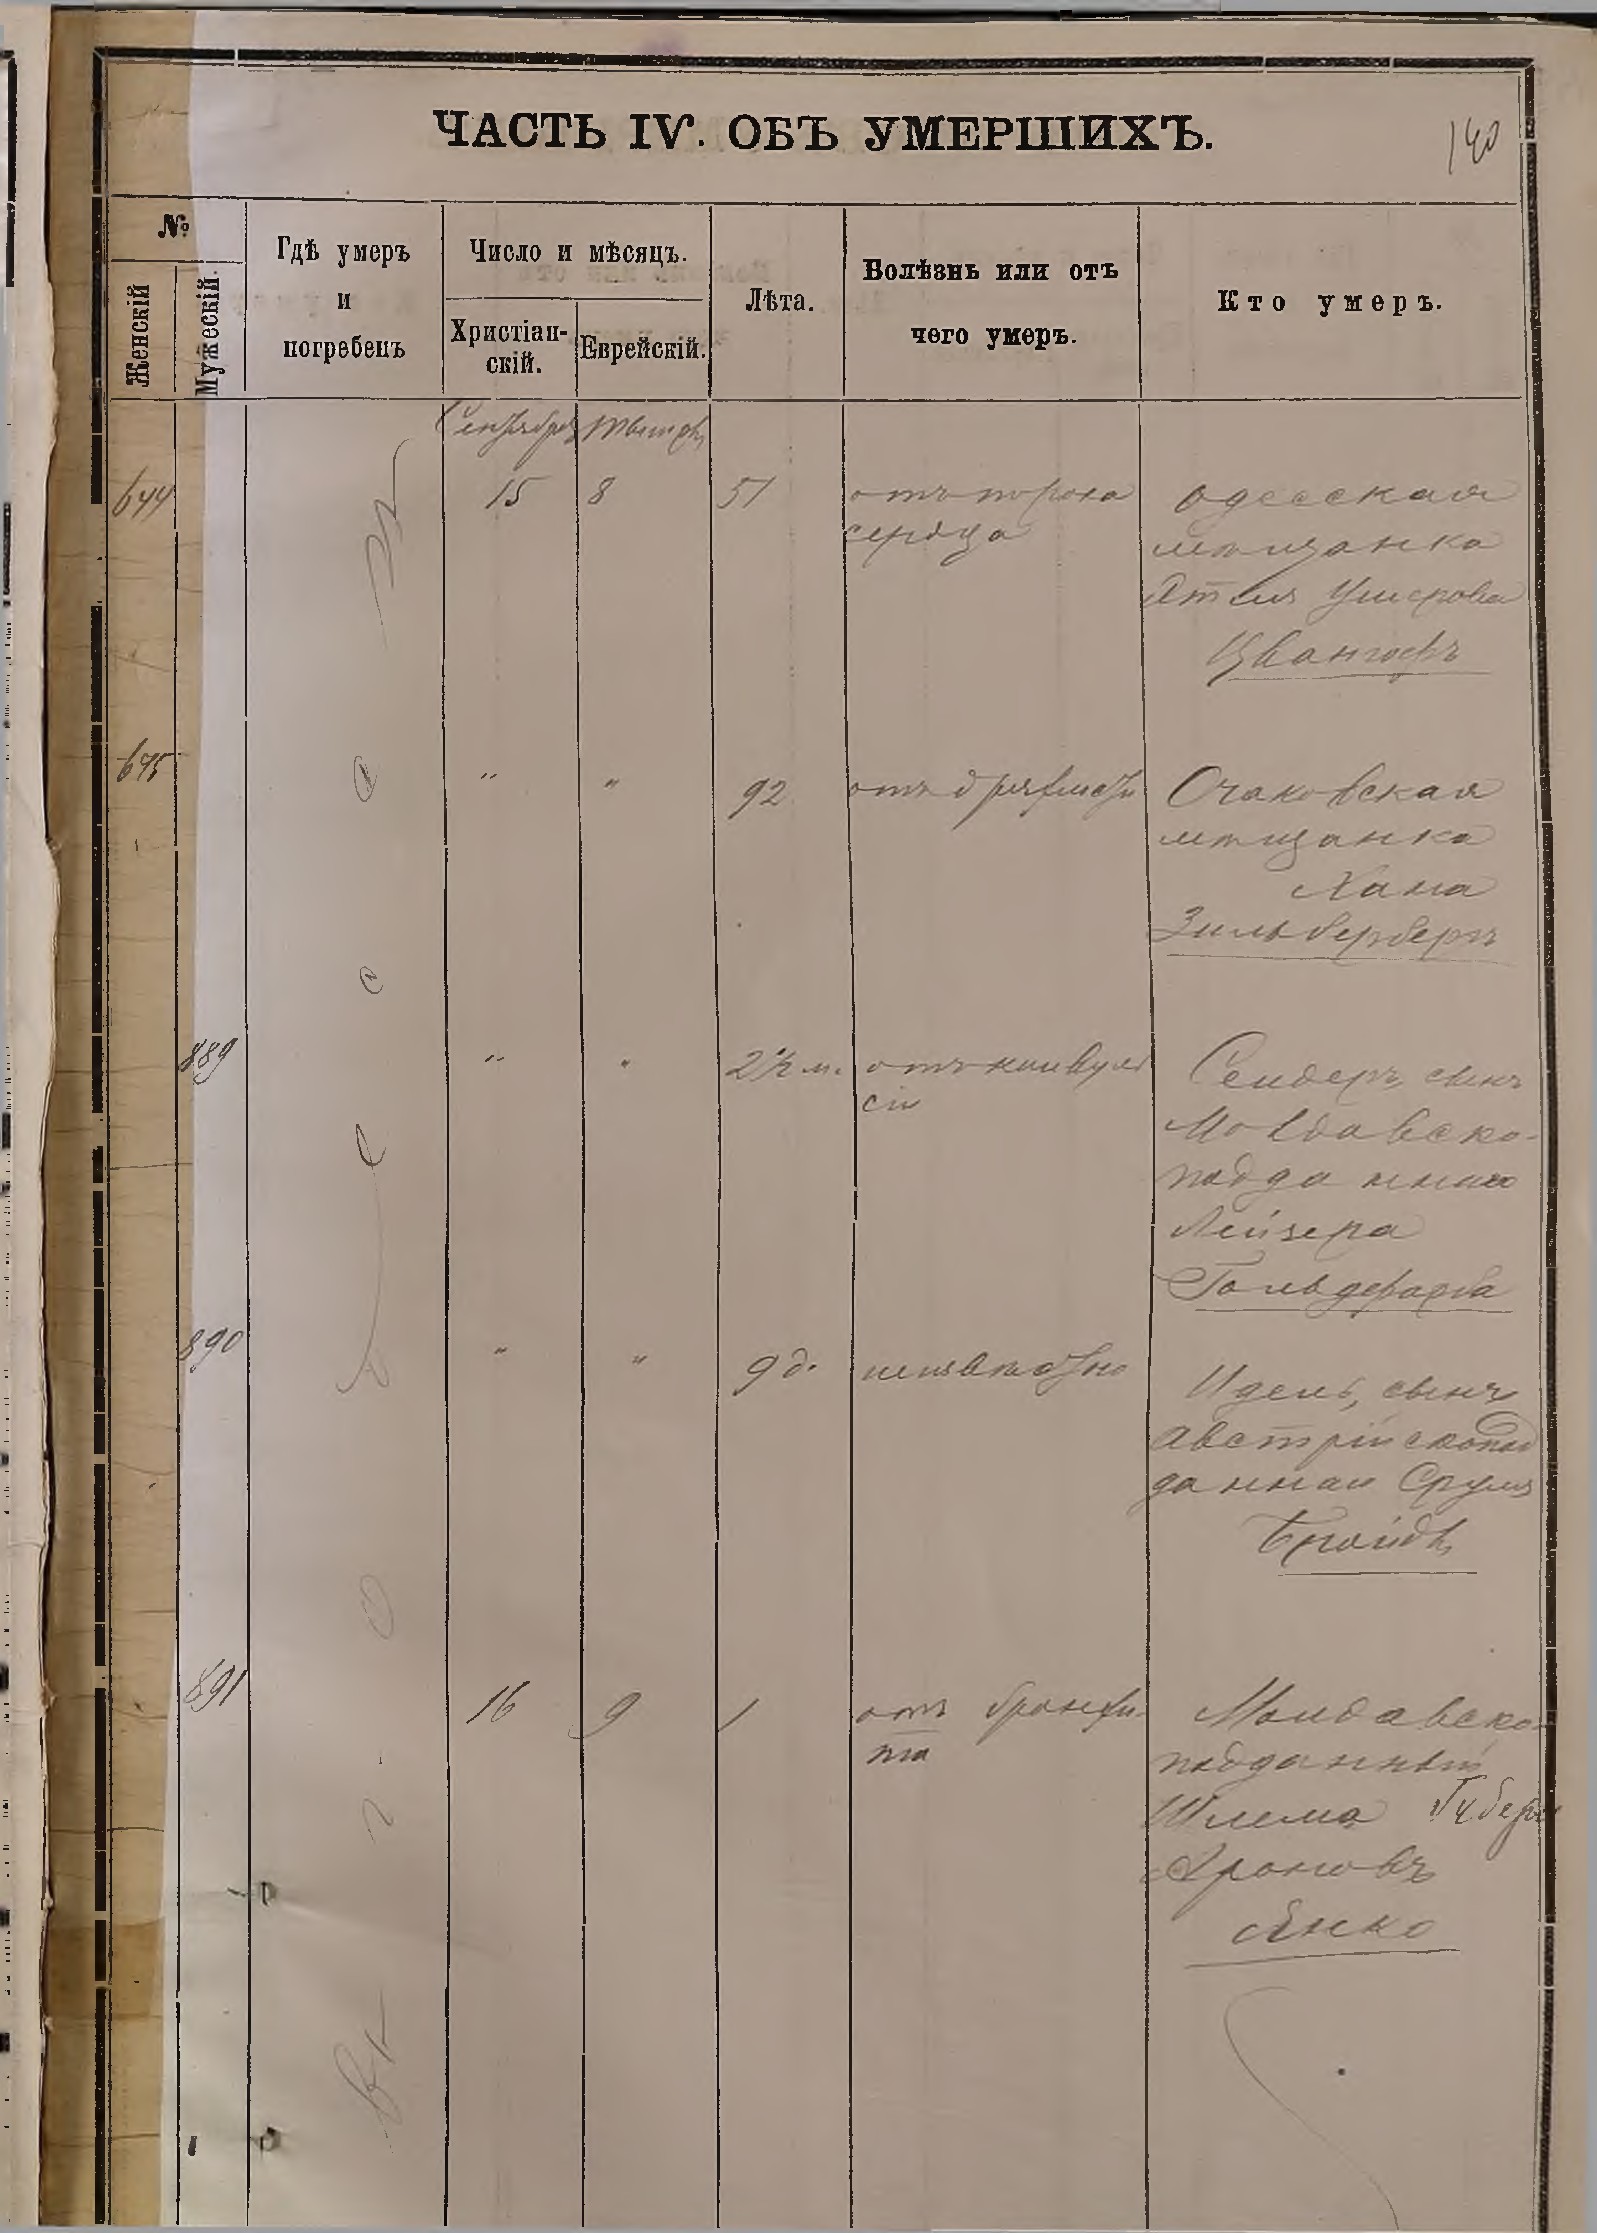 ЧАСТЬ IV. ОБЪ УМЕРШИХЪ.
140
№
Женскій
Мужескій.
Гдѣ умеръ
и
погребенъ
Число и мѣсяцъ.
Христіан-
скій.
Еврейскій.
Лѣта.
Болѣзнь или отъ
чего умеръ.
Кто умеръ.
Сентябрь
въ г. Одессѣ
644
15
8
51
отъ порока
сердца
одесская
мѣщанка
Ушерова
645
"
"
92
отъ дряхлости
Очаковская
мѣщанка
Хана
Зильберберг
889
"
"
2½ м.
отъ конвуль
сіи
Сендеръ, сынъ
Молдавско-
подданнаго
Лейзера
Гольдфарба
890
"
"
9 д.
неизвѣстно
Идель, сынъ
Австрійскопод
даннаго Сруля
891
16
9
1
отъ бронхи-
та
Молдавско-
подданный
Шлема
Ароновъ
Янко